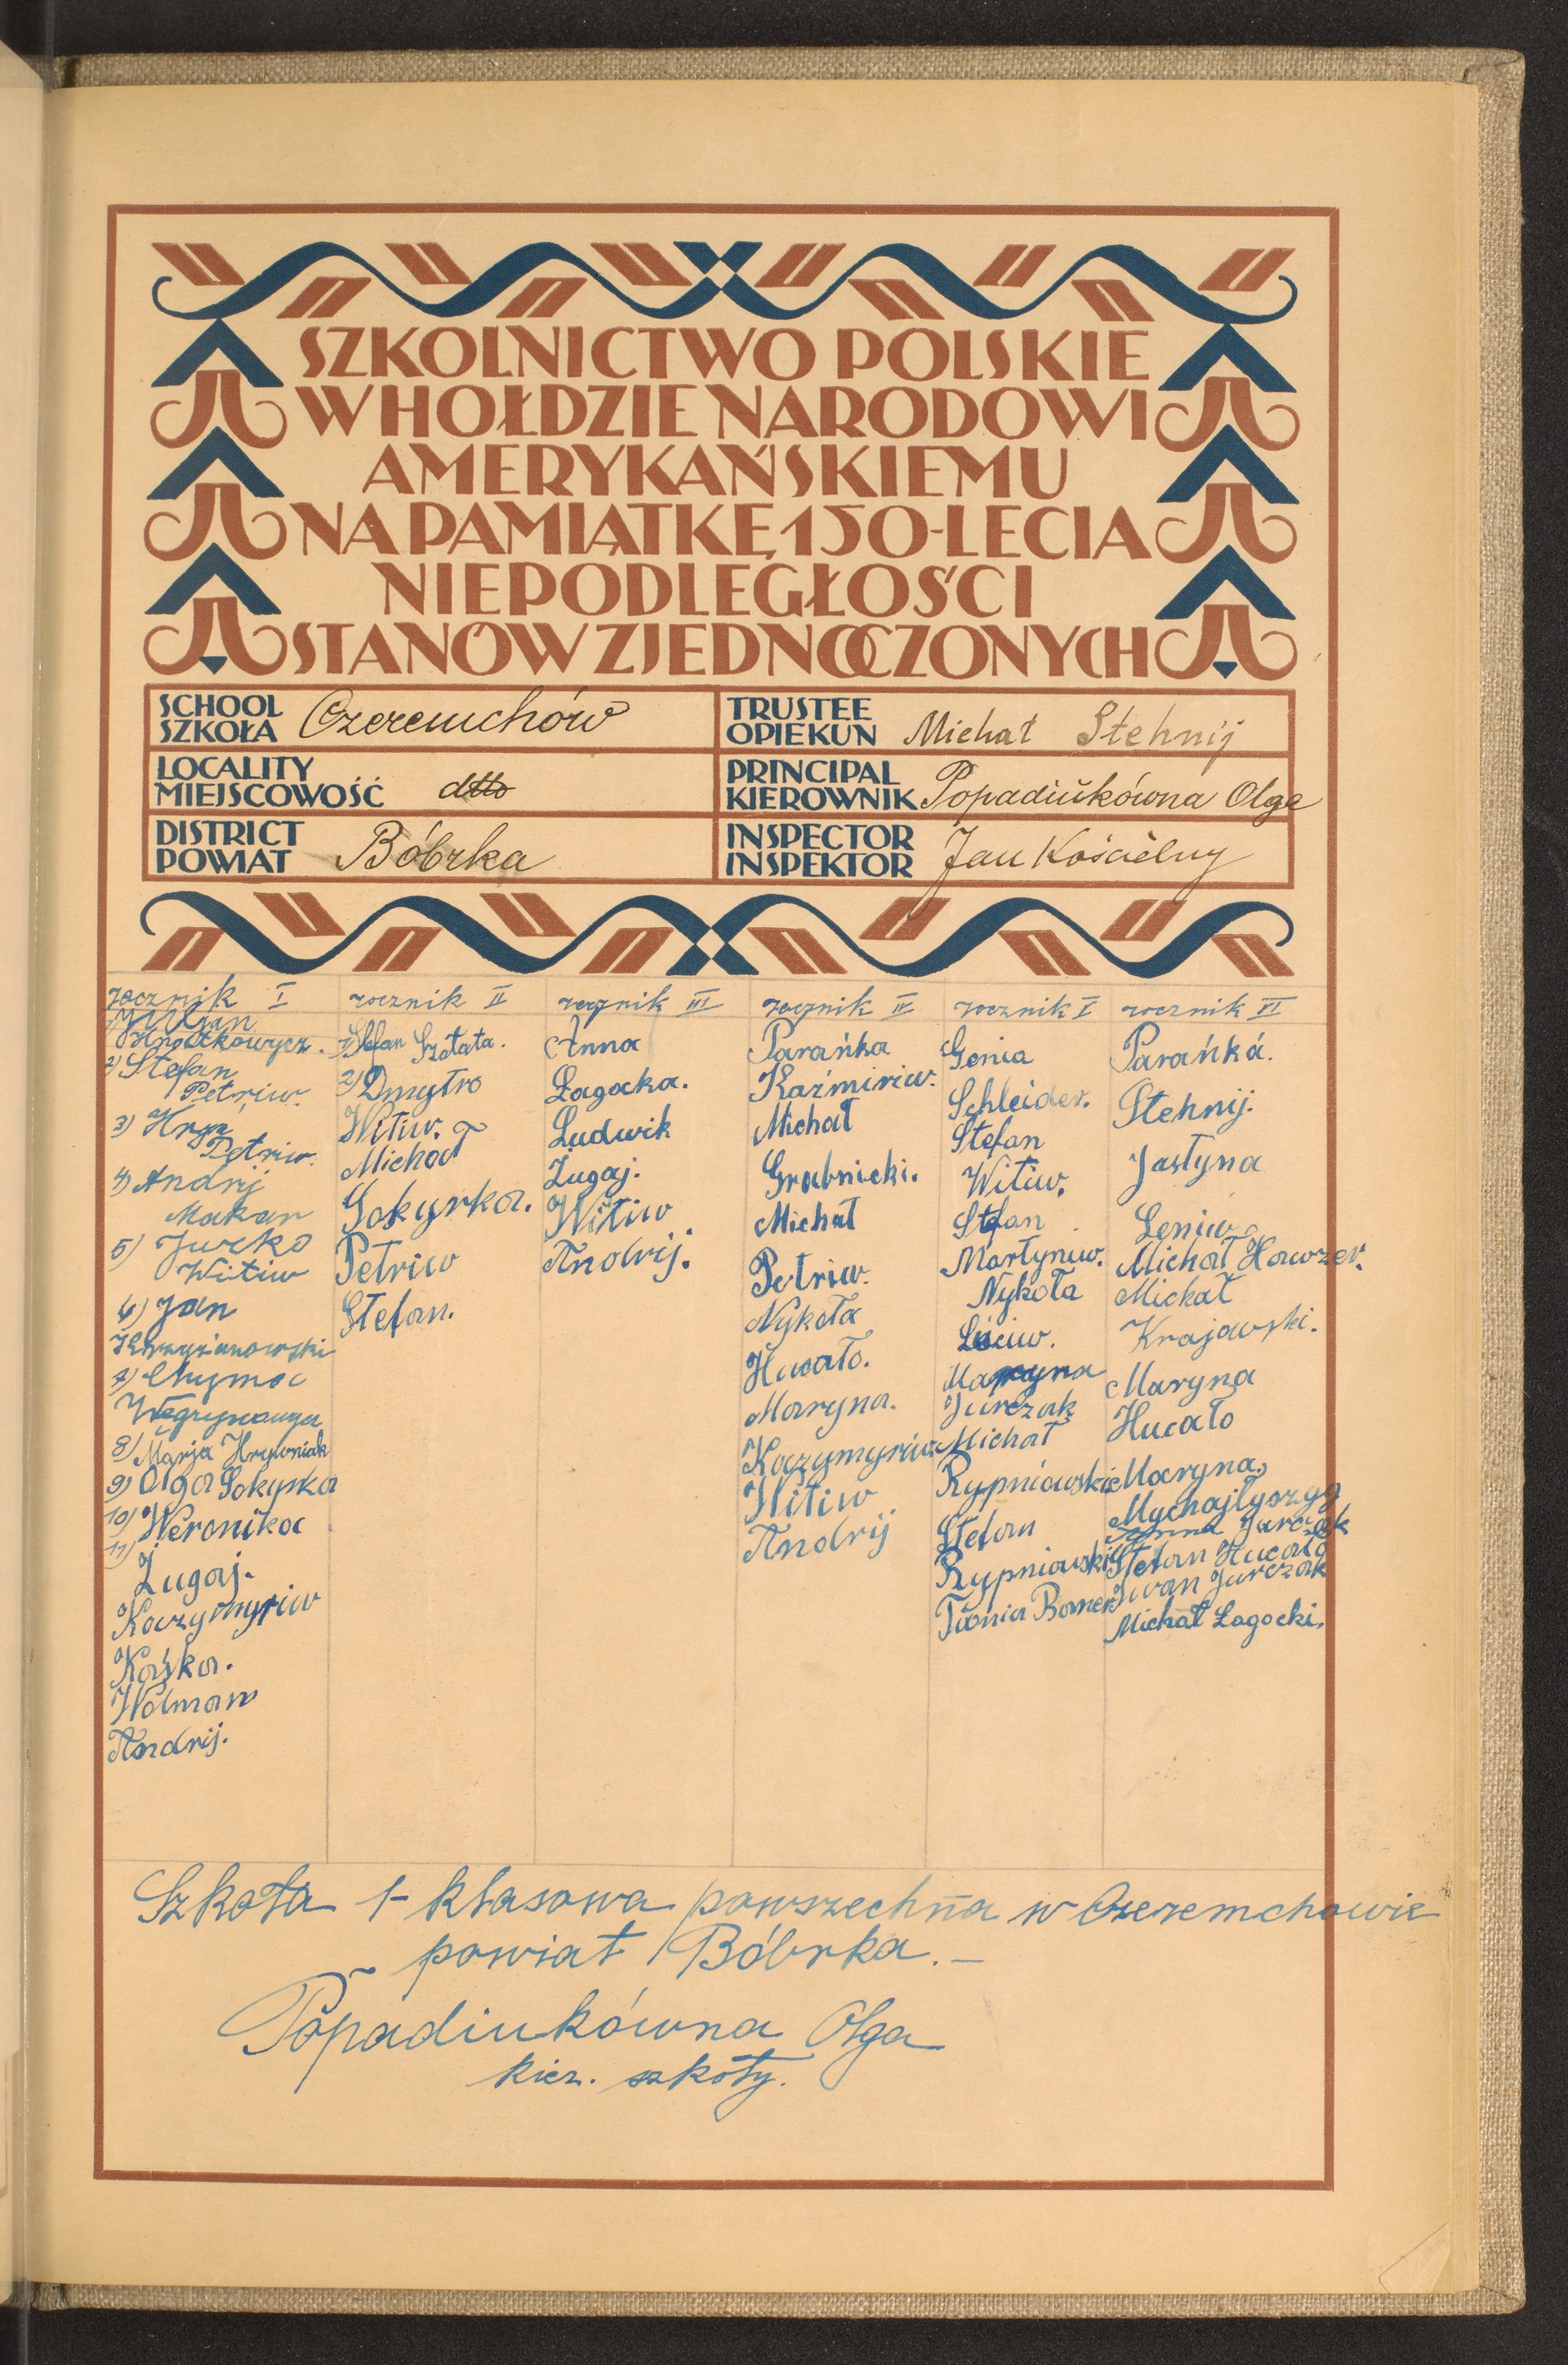 SZKOLNICTWO POLSKIE
W HOŁDZIE NARODOWI
AMERYKAŃSKIEMU
NA PAMIĄTKĘ 150-LECIA
NIEPODLEGŁOŚCI
STANÓW ZJEDNOCZONYCH
SCHOOL
SZKOŁA Czeremchów
TRUSTEE
OPIEKUN Michał Stehnij
LOCALITY
MIEJSCOWOŚĆ dtto
PRINCIPAL
KIEROWNIK Popadiukówna Olga
DISTRICT
POWIAT Bóbrka
INSPECTOR
INSPEKTOR Jan Kościelny
rocznik I
Hnatkowycz.
2) Stefan
Petriw.
3) Hryń
Petriw.
4) Andrij
Makar
5) Jurko
Witiw
6) Jan
Krzyżanowski
7)
8) Marja Hrywniak
9) Olga Sokyrka
10) Weronika
11)
Ługaj.
Kaczymyriw
Kaśka.
Wolman
Andrij.
rocznik II
1) Stefan Szałata.
2) Dmytro
Witiw.
Michał
Sokyrka.
Petriw
Stefan.
rocznik III
Anna
Łagocka.
Ludwik
Ługaj.
Witiw
Andrij.
rocznik IV
Parańka
Kaźmiriw.
Michał
Grabnicki.
Michał
Petriw.
Nykoła
Hucało.
Maryna.
Kaczymyriw
Witiw
Andrij
rocznik V
Genia
Schleider.
Stefan
Witiw.
Stefan
Martyniw.
Nykoła
Maryna
Jurczak
Michał
Rypniowski
Stefan
Rypniowski
rocznik VI
Parańka.
Stehnij.
Jastyna
Leniw
Michał Hawzer.
Michał
Krajowski.
Maryna
Hucało
Maryna
Mychajłyszyn
Anna Jurczak
Stefan Hucało
Iwan Jurczak
Michał Łagocki.
Szkoła 1-klasowa powszechna w Czeremchowie
powiat Bóbrka. –
Popadiukówna Olga
kier. szkoły.